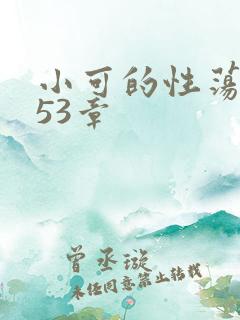 小可的性荡
53章
曾丞璇
未经同意禁止转载